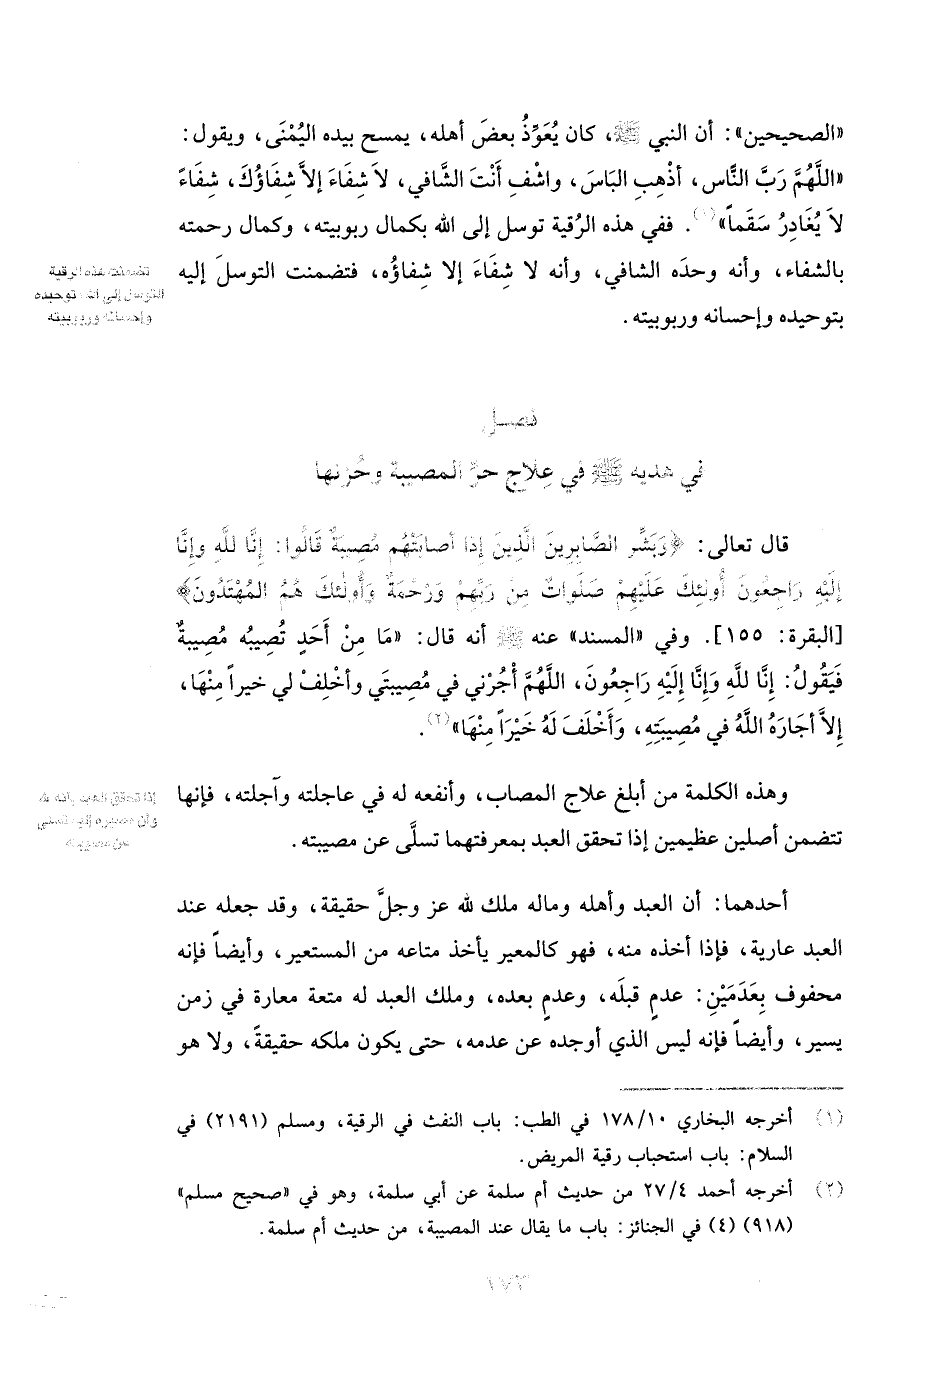 «الصحيحين»: أن النبي ﷺ، كان يُعَوِّذُ بعضَ أهله، يمسح بيده اليُمْنَى، ويقول:
«اللَّهُمَّ رَبَّ النَّاس، أذْهِبِ البَاسَ، واشْفِ أَنْتَ الشَّافي، لاَ شِفَاءَ إلاَّ شِفَاؤُكَ، شِفَاءً
لاَ يُغَادِرُ سَقَماً»(١). ففي هذه الرُقية توسل إلى الله بكمال ربوبيته، وكمال رحمته
بالشفاء، وأنه وحدَه الشافي، وأنه لا شِفَاءَ إلا شِفاؤُه، فتضمنت التوسلَ إليه
بتوحيده وإحسانه وربوبيته.
تضمنت هذه الرقية
التوسل إلى الله بتوحيده
وإحسانه وربوبيته
فصل
في هديه ﷺ في عِلاج حرِّ المصيبة وحُزنها
قال تعالى: ﴿وَبَشِّر الصَّابِرِينَ الَّذِينَ إذَا أصَابَتْهُم مُصِيبَةٌ قَالُوا: إِنَّا للَّهِ وإِنَّا
إلَيْهِ رَاجِعُونَ أُولئِكَ عَلَيْهِمْ صَلَوَاتٌ مِنْ رَبِّهِمْ وَرَحْمَةٌ وَأُولٰئِكَ هُمُ المُهْتَدُونَ﴾
[البقرة: ١٥٥]. وفي «المسند» عنه ﷺ أنه قال: «مَا مِنْ أَحَدٍ تُصِيبُه مُصِيبةٌ
فَيَقُولُ: إنَّا للَّهِ وَإِنَّا إلَيْهِ رَاجِعُونَ، اللَّهُمَّ أْجُرْني في مُصِيبتَي وأخْلِفْ لي خيراً مِنْهَا،
إلاَّ أجَارَهُ اللَّهُ في مُصِيبَتِهِ، وَأَخْلَفَ لَهُ خَيْرَاً مِنْهَا»(٢).
وهذه الكلمة من أبلغ علاج المصاب، وأنفعه له في عاجلته وآجلته، فإنها
تتضمن أصلين عظيمين إذا تحقق العبد بمعرفتهما تسلَّى عن مصيبته.
إذا تحقق العبد بأنه لله
وأن مصيره إليه تسلى
عن مصيبته
أحدهما: أن العبد وأهله وماله ملك لله عز وجلَّ حقيقة، وقد جعله عند
العبد عارية، فإذا أخذه منه، فهو كالمعير يأخذ متاعه من المستعير، وأيضاً فإنه
محفوف بِعَدَمَيْنِ: عدمٍ قبلَه، وعدمٍ بعده، وملك العبد له متعة معارة في زمن
يسير، وأيضاً فإنه ليس الذي أوجده عن عدمه، حتى يكون ملكه حقيقةً، ولا هو
(١) أخرجه البخاري ١٧٨/١٠ في الطب: باب النفث في الرقية، ومسلم (٢١٩١) في
السلام: باب استحباب رقية المريض.
(٢) أخرجه أحمد ٢٧/٤ من حديث أم سلمة عن أبي سلمة، وهو في «صحيح مسلم»
(٩١٨) (٤) في الجنائز: باب ما يقال عند المصيبة، من حديث أم سلمة.